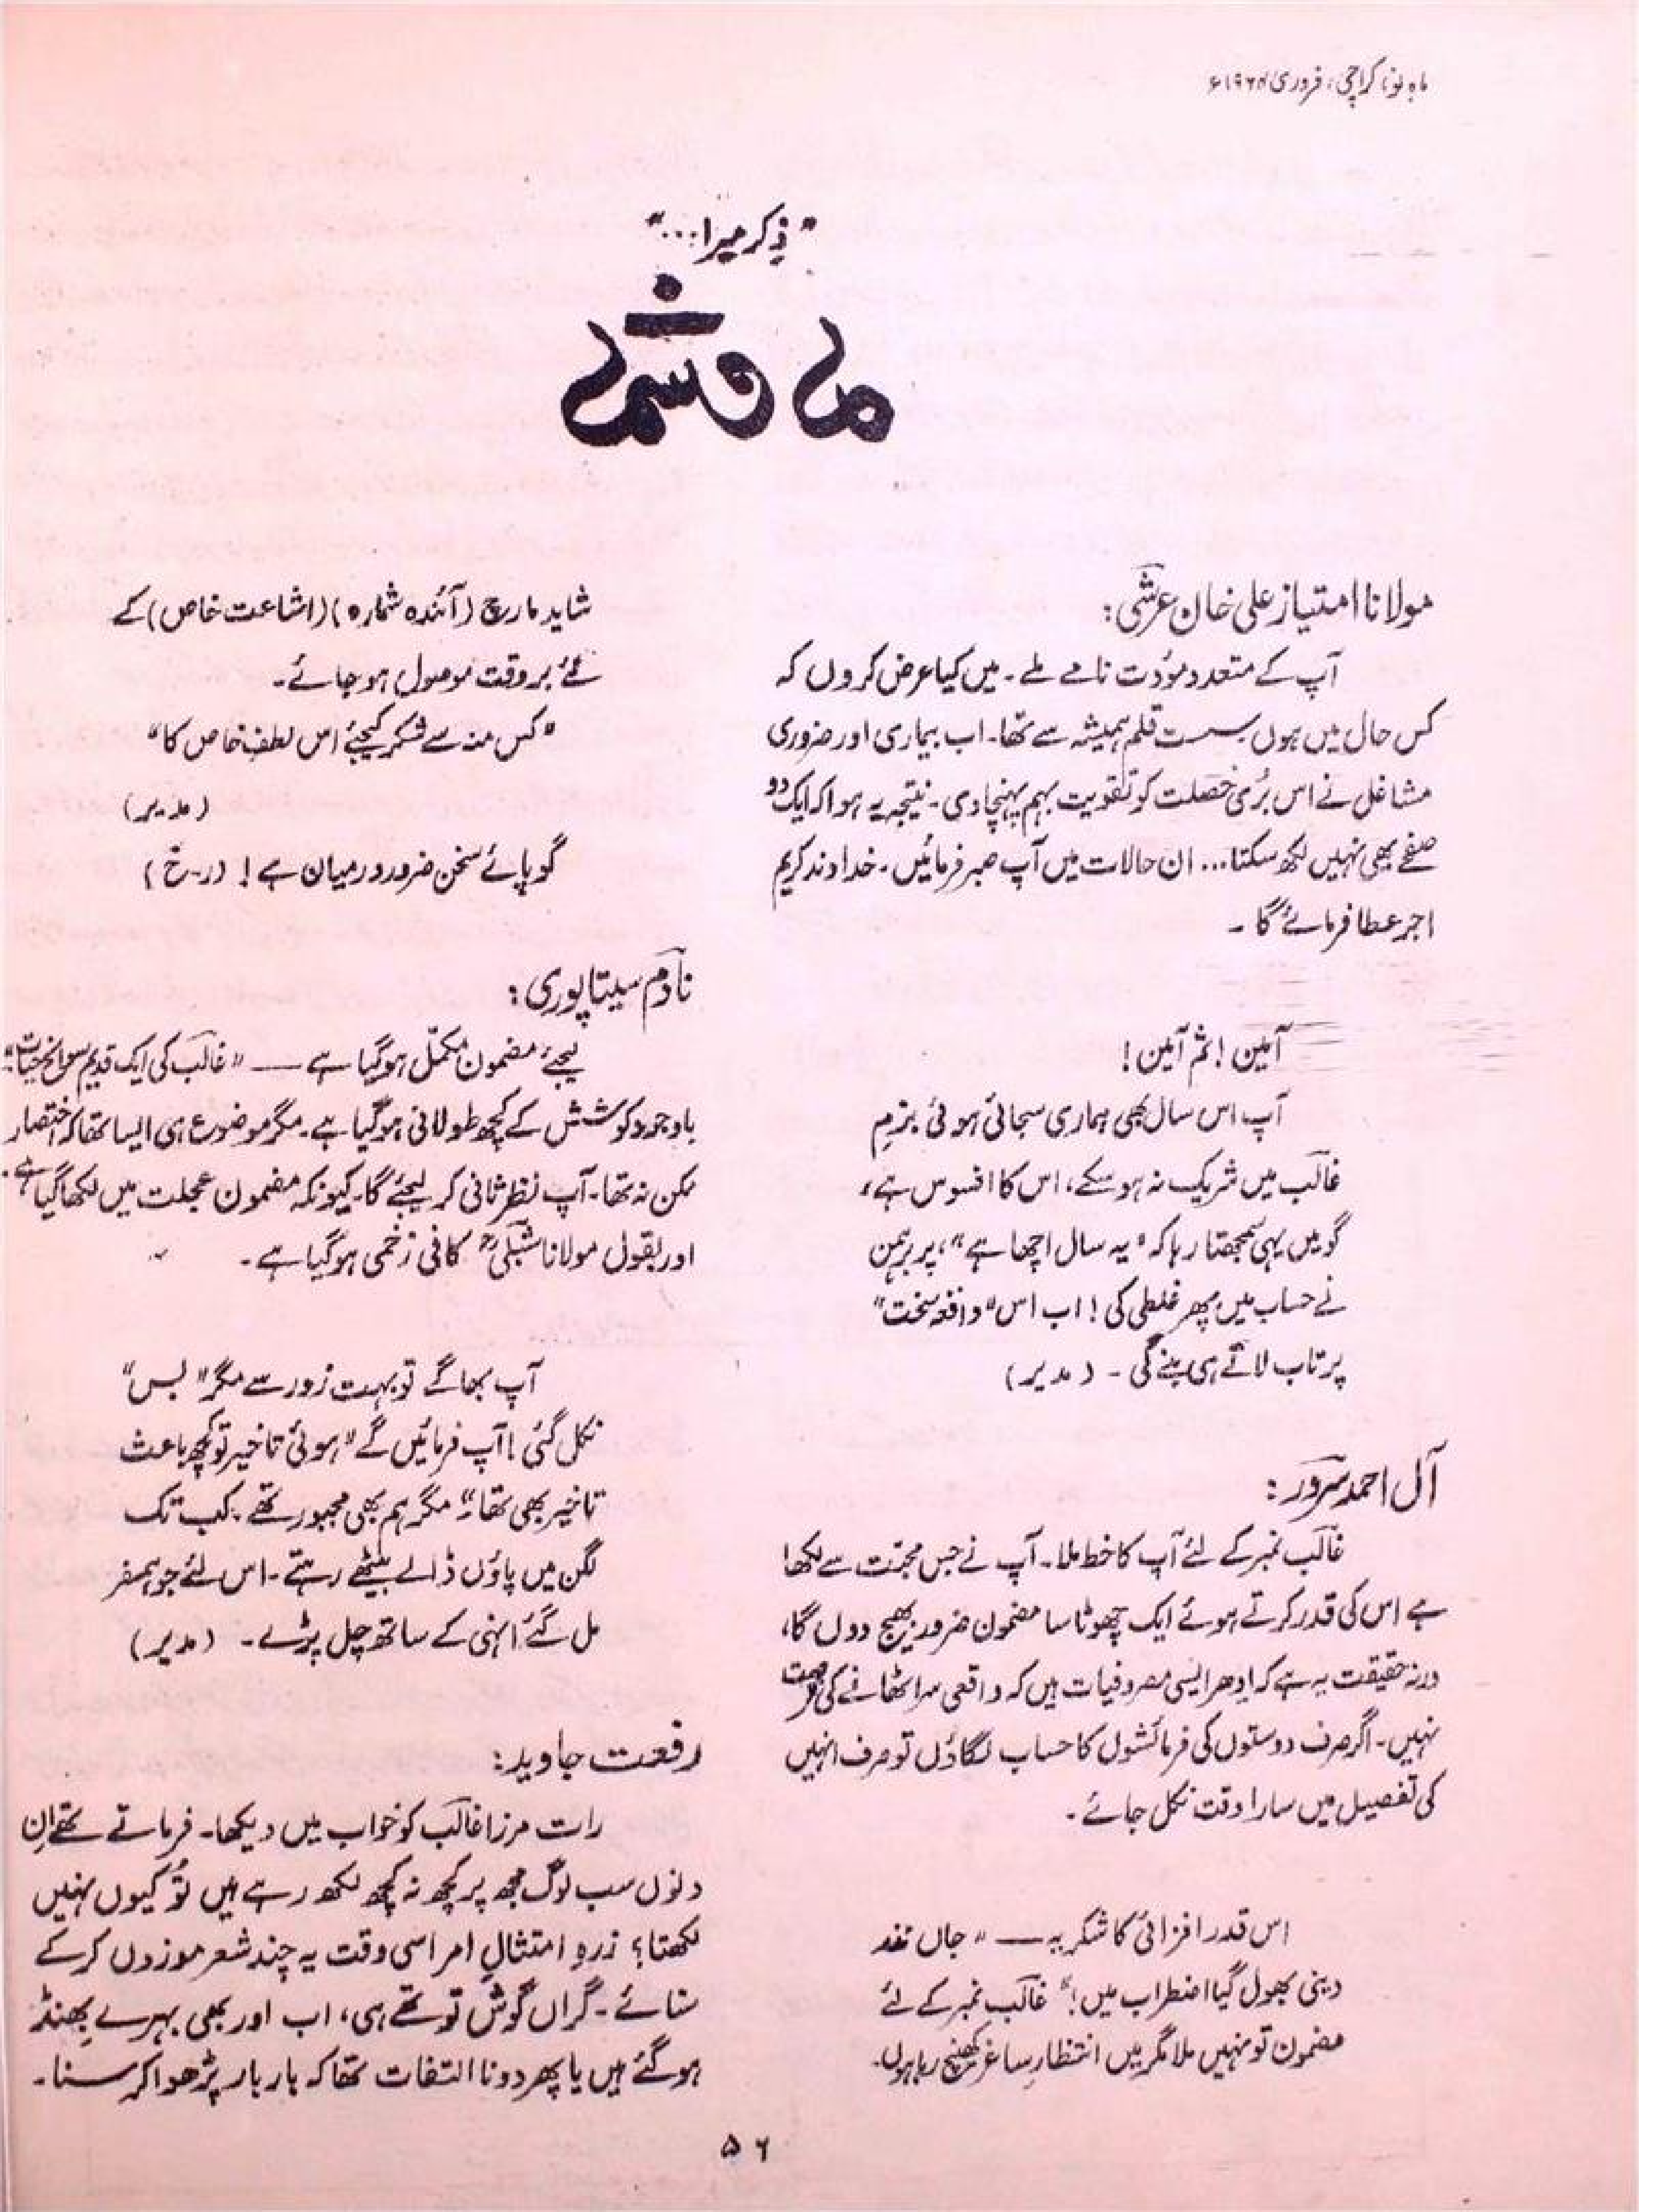 ماہِ نو، کراچی، فروری ۱۹۶۸ء
"ذکر میرا..."
ما و شما
مولانا امتیاز علی خان عرشی:
آپ کے متعدد مودّت نامے ملے۔ میں کیا عرض کروں کہ
کس حال میں ہوں سست قلم ہمیشہ سے تھا۔ اب بیماری اور ضروری
مشاغل نے اس بُری خصلت کو تقویت بہم پہنچا دی۔ نتیجہ یہ ہوا کہ ایک دو
صفحے بھی نہیں لکھ سکتا... ان حالات میں آپ صبر فرمائیں۔ خداوند کریم
اجر عطا فرمائے گا۔
آمین! ثم آمین!
آپ اس سال بھی ہماری سجائی ہوئی بزمِ
غالب میں شریک نہ ہو سکے، اس کا افسوس ہے،
گو میں یہی سمجھتا رہا کہ "یہ سال اچھا ہے"، پر برہمن
نے حساب میں پھر غلطی کی! اب اس "واقعہ سخت"
پر تاب لاتے ہی بنے گی۔ (مدیر)
آل احمد سرور:
غالب نمبر کے لئے آپ کا خط ملا۔ آپ نے جس محبّت سے لکھا
ہے اس کی قدر کرتے ہوئے ایک چھوٹا سا مضمون ضرور بھیج دوں گا،
ورنہ حقیقت یہ ہے کہ اِدھر ایسی مصروفیات ہیں کہ واقعی سر اٹھانے کی فرصت
نہیں۔ اگر صرف دوستوں کی فرمائشوں کا حساب لگاؤں تو صرف انہیں
کی تفصیل میں سارا وقت نکل جائے۔
اس قدر افزائی کا شکریہ — "جاں نذر
دینی بھول گیا اضطراب میں!" غالب نمبر کے لئے
مضمون تو نہیں ملا مگر میں انتظارِ ساغر کھینچ رہا ہوں۔
شاید مارچ (آئندہ شمارہ) (اشاعت خاص) کے
لئے بروقت موصول ہو جائے۔
"کس منہ سے شکر کیجئے اس لطف خاص کا"
(مدیر)
گو پائے سخن ضرور درمیان ہے! (ر-خ)
نادم سیتاپوری:
لیجئے مضمون مکمّل ہو گیا ہے — "غالب کی ایک قدیم سوانح حیات"۔
باوجود کوشش کے کچھ طولانی ہو گیا ہے۔ مگر موضوع ہی ایسا تھا کہ اختصار
ممکن نہ تھا۔ آپ نظر ثانی کر لیجئے گا۔ کیونکہ مضمون عجلت میں لکھا گیا ہے۔
اور بقول مولانا شبلیؒ کافی زخمی ہو گیا ہے۔
آپ بھاگے تو بہت زور سے مگر "بس"
نکل گئی! آپ فرمائیں گے "ہوئی تاخیر تو کچھ باعث
تاخیر بھی تھا" مگر ہم بھی مجبور تھے۔ کب تک
لگن میں پاؤں ڈالے بیٹھے رہتے۔ اس لئے جو ہمسفر
مل گئے انہی کے ساتھ چل پڑے۔ (مدیر)
رفعت جاوید:
رات مرزا غالب کو خواب میں دیکھا۔ فرماتے تھے اِن
دنوں سب لوگ مجھ پر کچھ نہ کچھ لکھ رہے ہیں تُو کیوں نہیں
لکھتا؟ زرہِ امتثالِ امر اسی وقت یہ چند شعر موزوں کر کے
سنائے۔ گراں گوش تو تھے ہی، اب اور بھی بہرے بِھنڈ
ہو گئے ہیں یا پھر دونا التفات تھا کہ بار بار پڑھوا کر سنا۔
۵۶